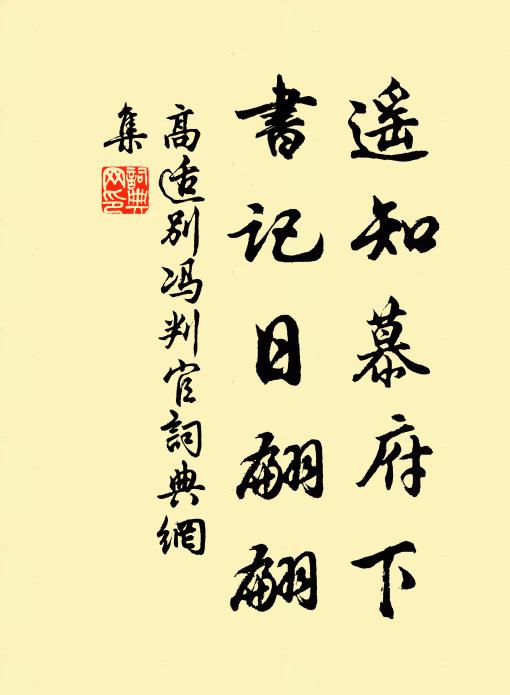 遥知慕府下
書記日翩翩
高适别冯判官詞典網
集
詞典网印